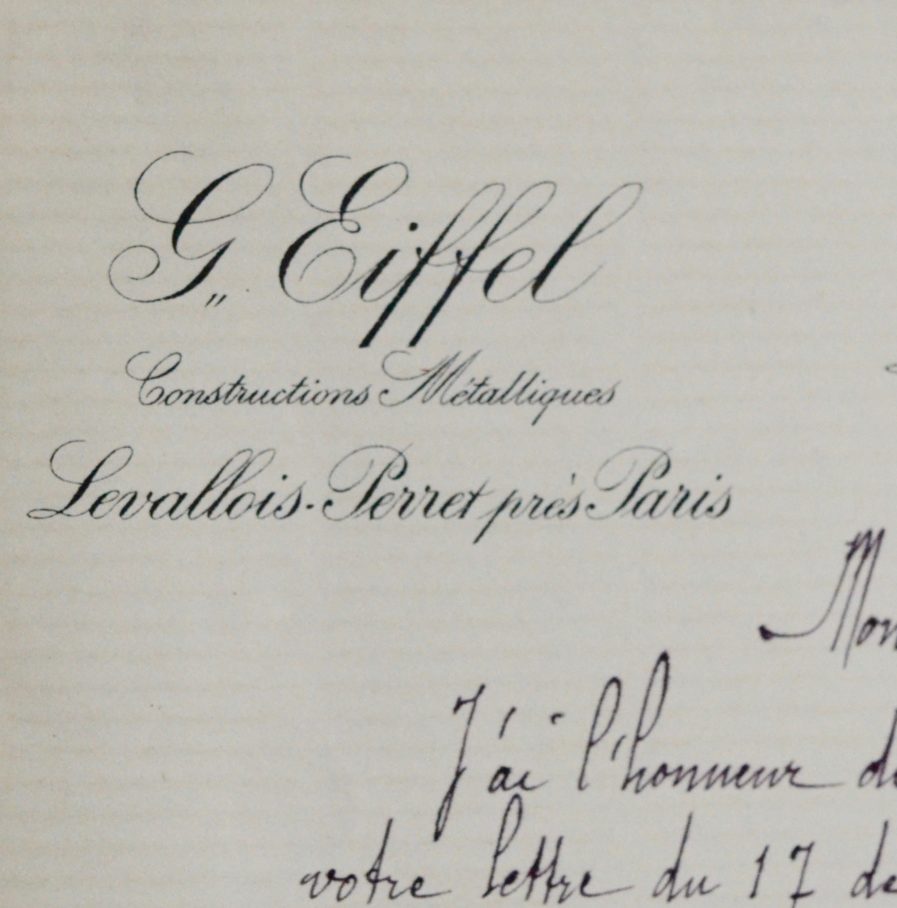 G„ Eiffel
Constructions Métalliques
Levallois-Perret près Paris
J'ai l'honneur de
votre lettre du 17 de